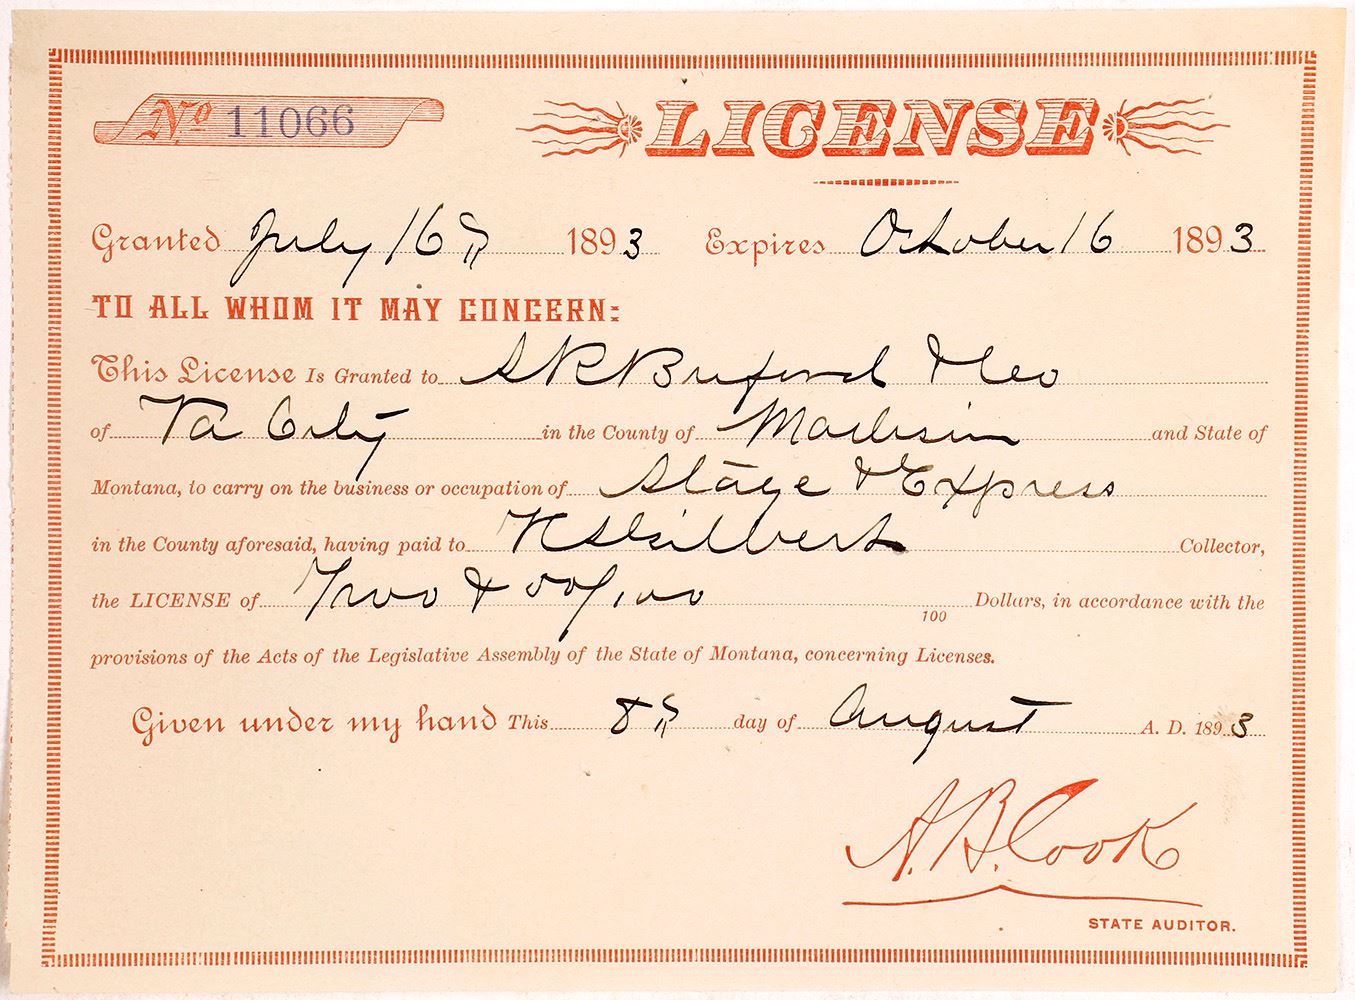 No 11066 LICENSE
Granted July 16th 1893 Expires October 16 1893
TO ALL WHOM IT MAY CONCERN:
This License Is Granted to S R Buford & Co
of Va City in the County of Madison and State of
Montana, to carry on the business or occupation of Stage & Express
in the County aforesaid, having paid to Gilbert Collector,
the LICENSE of Two & 00/100 100 Dollars, in accordance with the
provisions of the Acts of the Legislative Assembly of the State of Montana, concerning Licenses.
Given under my hand This 8th day of August A. D. 1893
A.B. Cook
STATE AUDITOR.